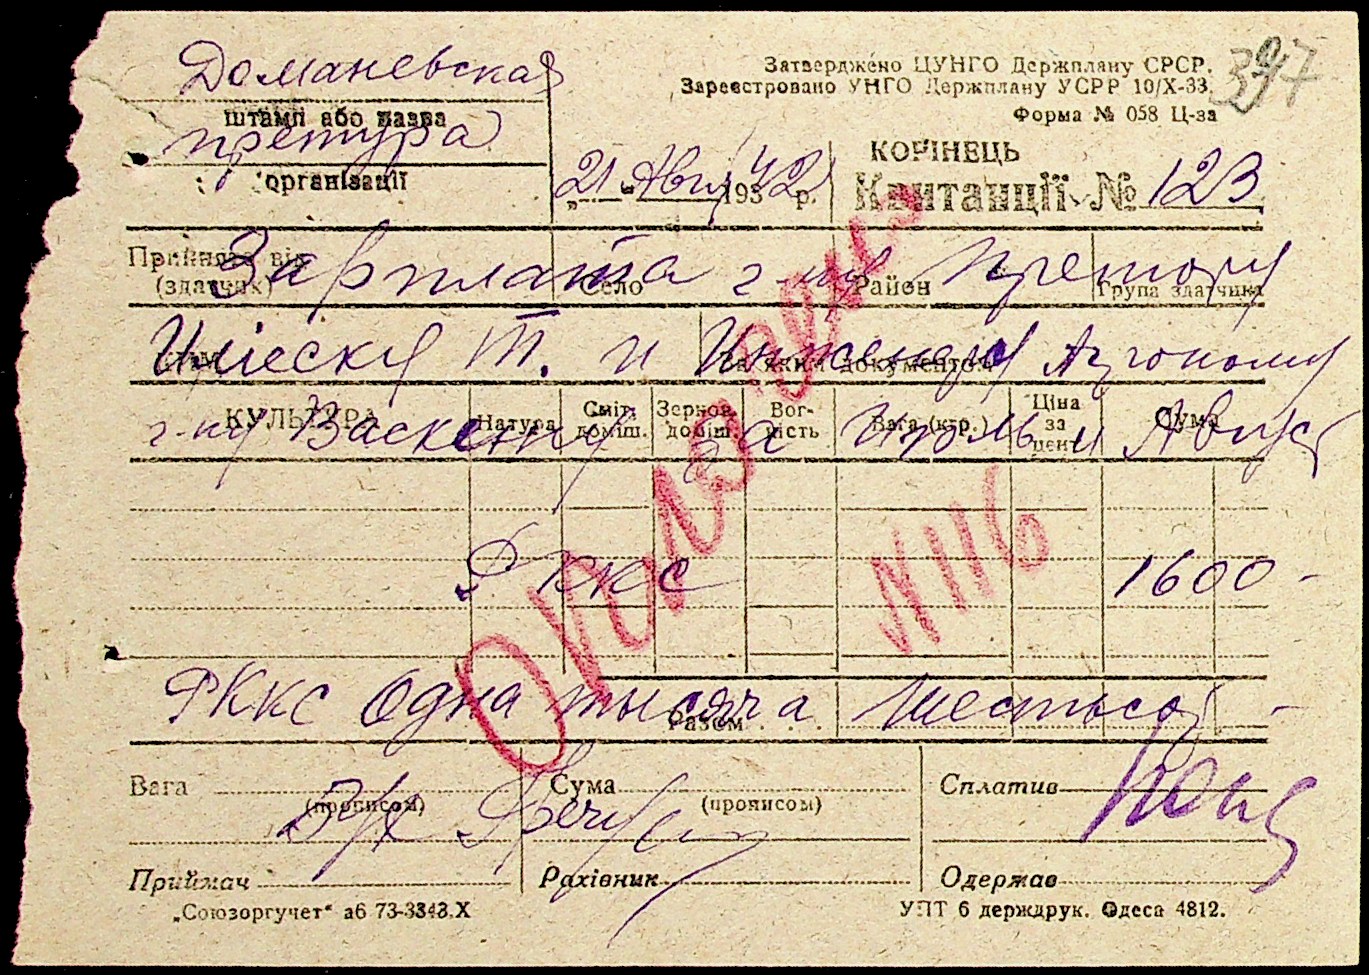 Доманевская
штамп або назва
претура
організації
Затверджено ЦУНГО Держплану СРСР.
Зареєстровано УНГО Держплану УСРР 10/X-33.
Форма № 058 Ц-за
397
"21" Авгу 1942 р.
КОРІНЕЦЬ
Квитанції № 123
Прийнято від
(здатчик)
Село
Район
Група здатчика
Зарплата г-ну Претору
Т. и Инженеру Агроному
За яким документом
КУЛЬТУРА
Натура
Сміт. доміш.
Зернов. доміш.
Вог-кість
Вага (кгр.)
Ціна за цент.
Сума
г-ну за Июль и Август
Оплачен
N 116
РККС 1600-
РККС Одна тысяча шестьсот -
Разом . . .
Вага
(прописом)
Сума
(прописом)
Сплатив
Бух
Приймач
Рахівник
Одержав
„Союзоргучет“ а6 73-3343.X
УПТ 6 держдрук. Одеса 4812.